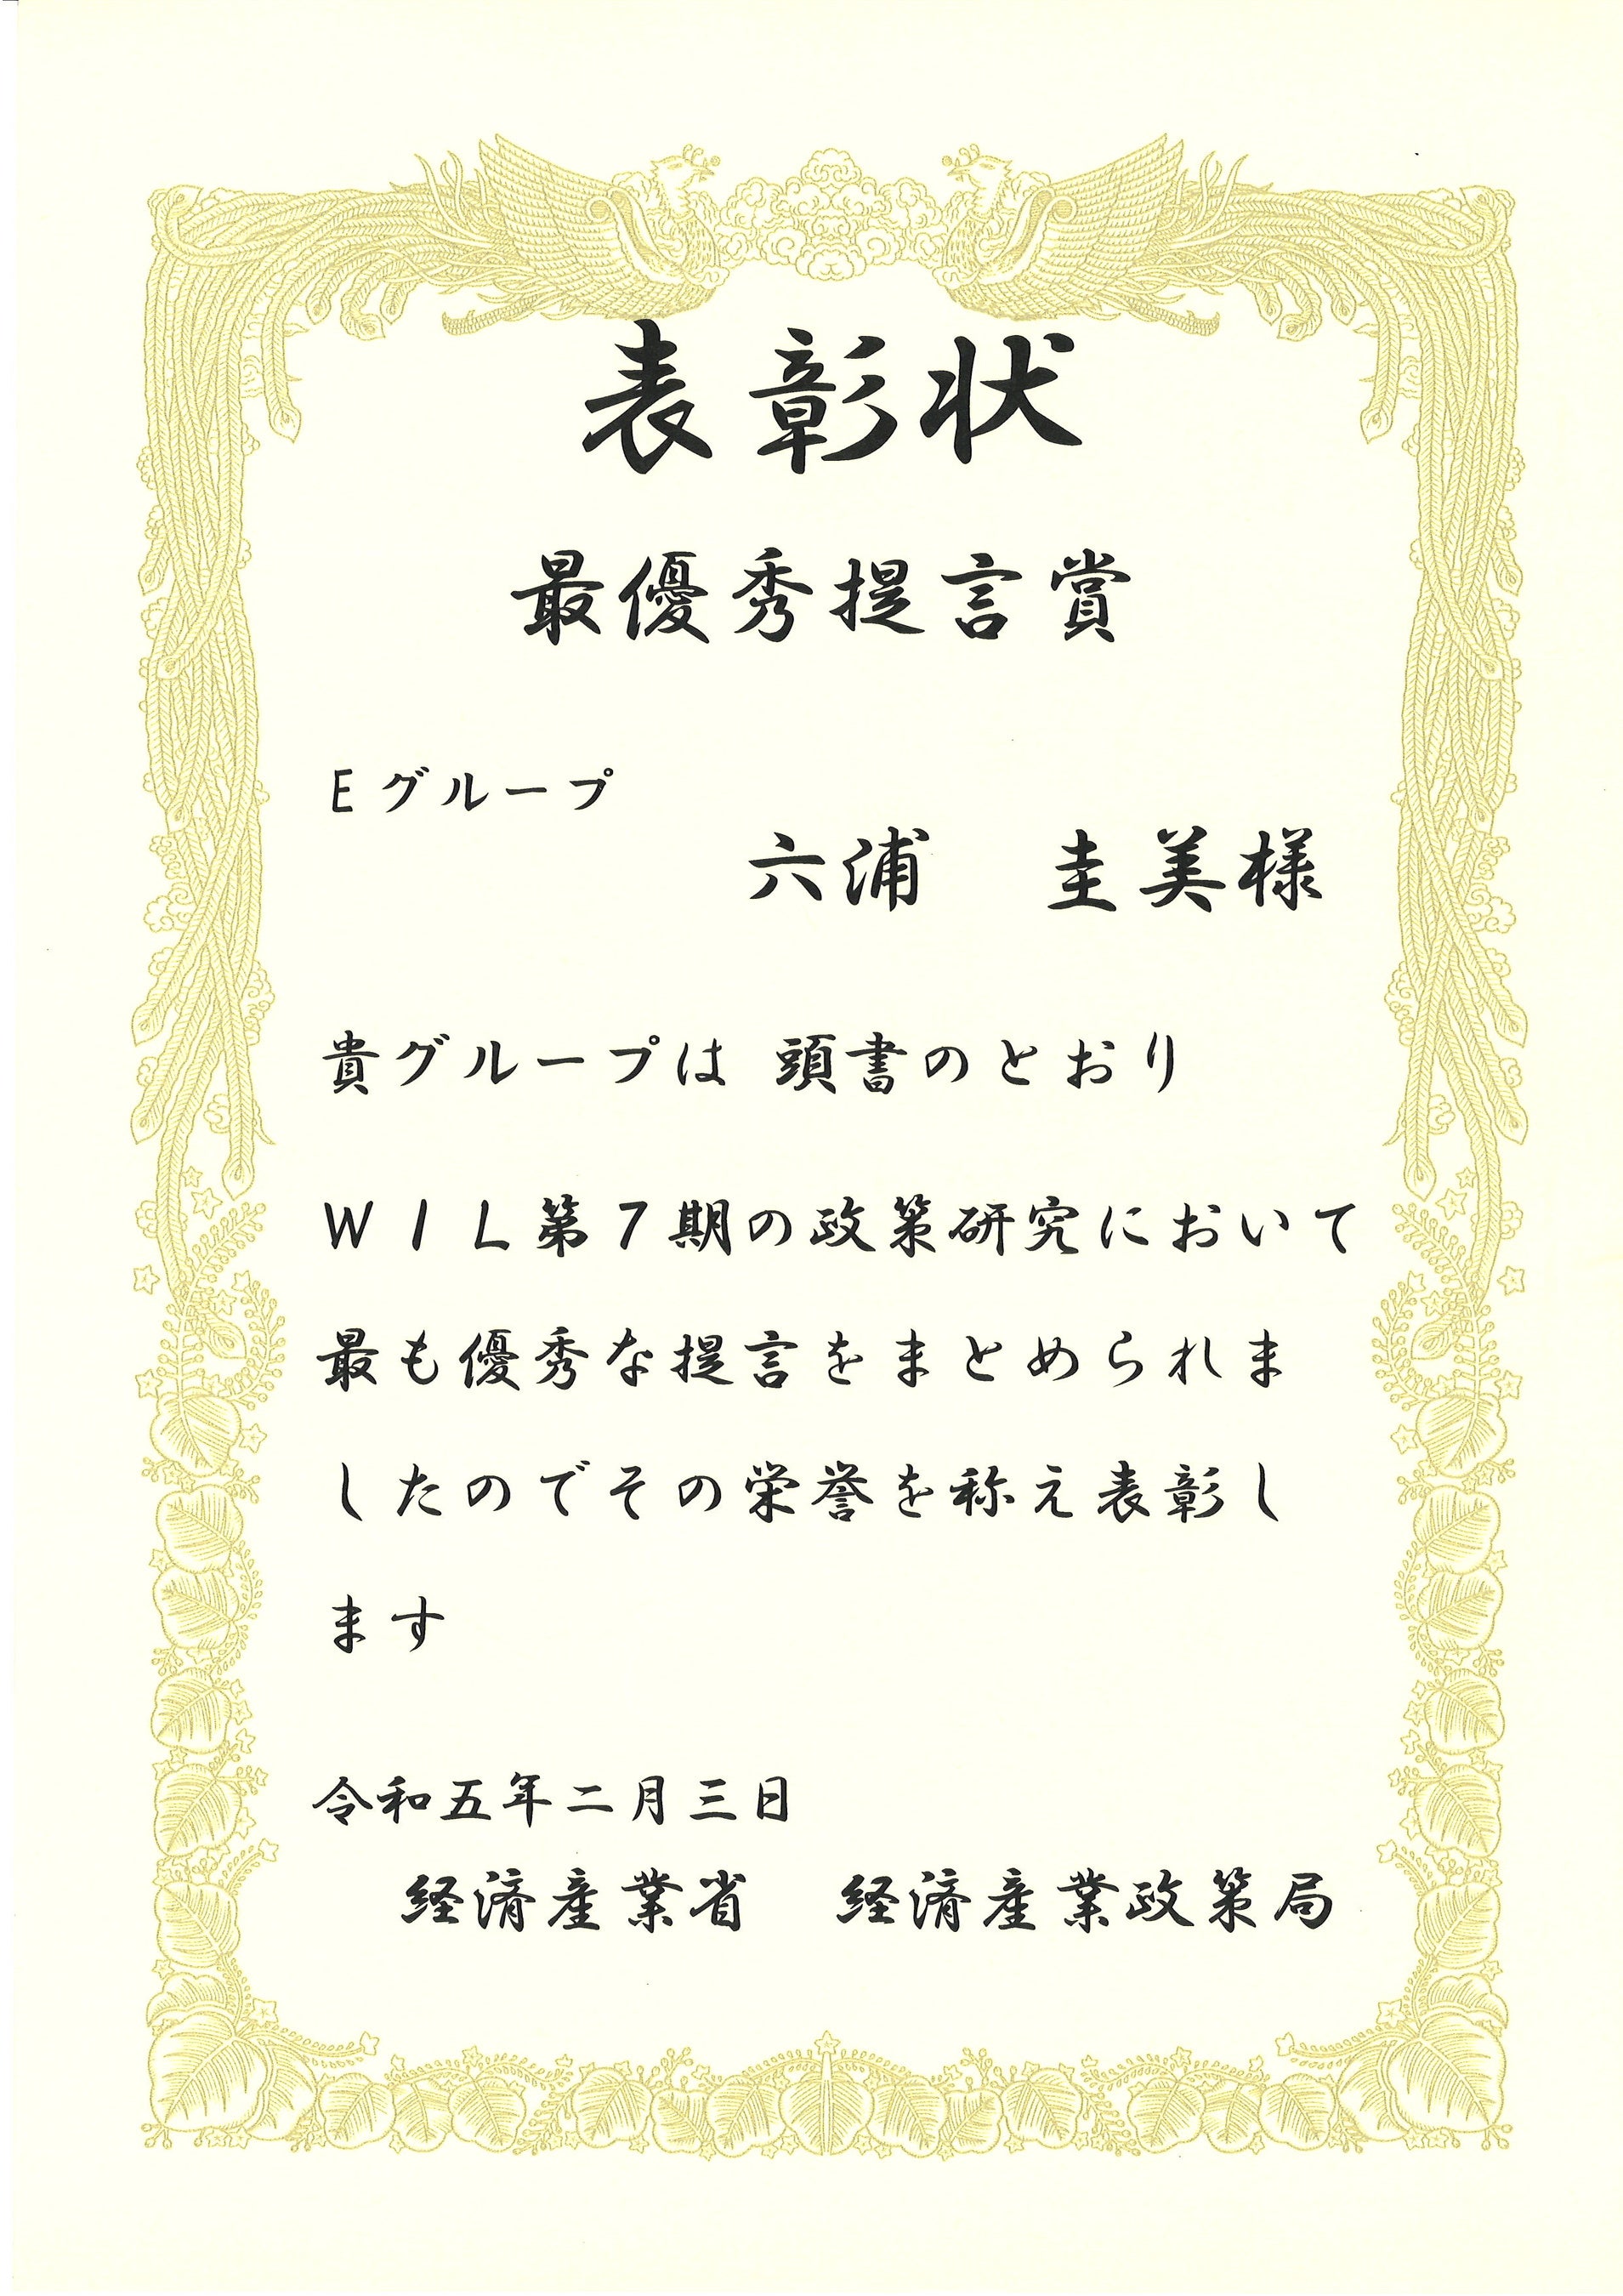 表彰状
最優秀提言賞
Eグループ
六浦　圭美様
貴グループは 頭書のとおり
ＷＩＬ第７期の政策研究において
最も優秀な提言をまとめられま
したのでその栄誉を称え表彰し
ます
令和五年二月三日
経済産業省　経済産業政策局